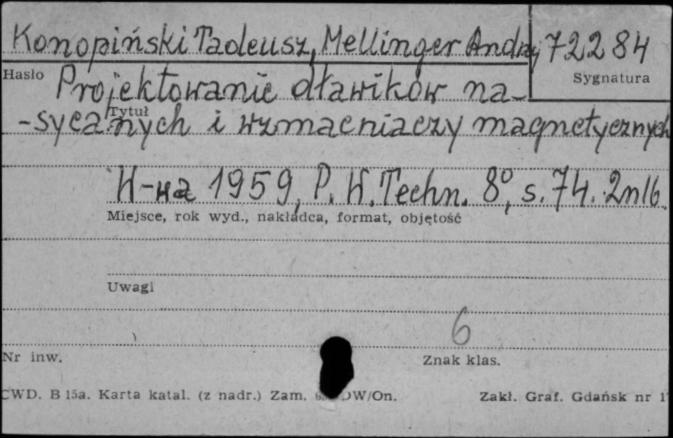 Konopiński Tadeusz, Mellinger Andrzej 72284
Hasło
Sygnatura
Projektowanie dławików na-
Tytuł
-sycanych i wzmacniaczy magnetycznych
W-wa 1959, P. W. Techn. 8°, s. 74. 2nlb.
Miejsce, rok wyd., nakładca, format, objętość
Uwagi
6
Nr inw.
Znak klas.
CWD. B 15a. Karta katal. (z nadr.) Zam. DW/On. Zakł. Graf. Gdańsk nr